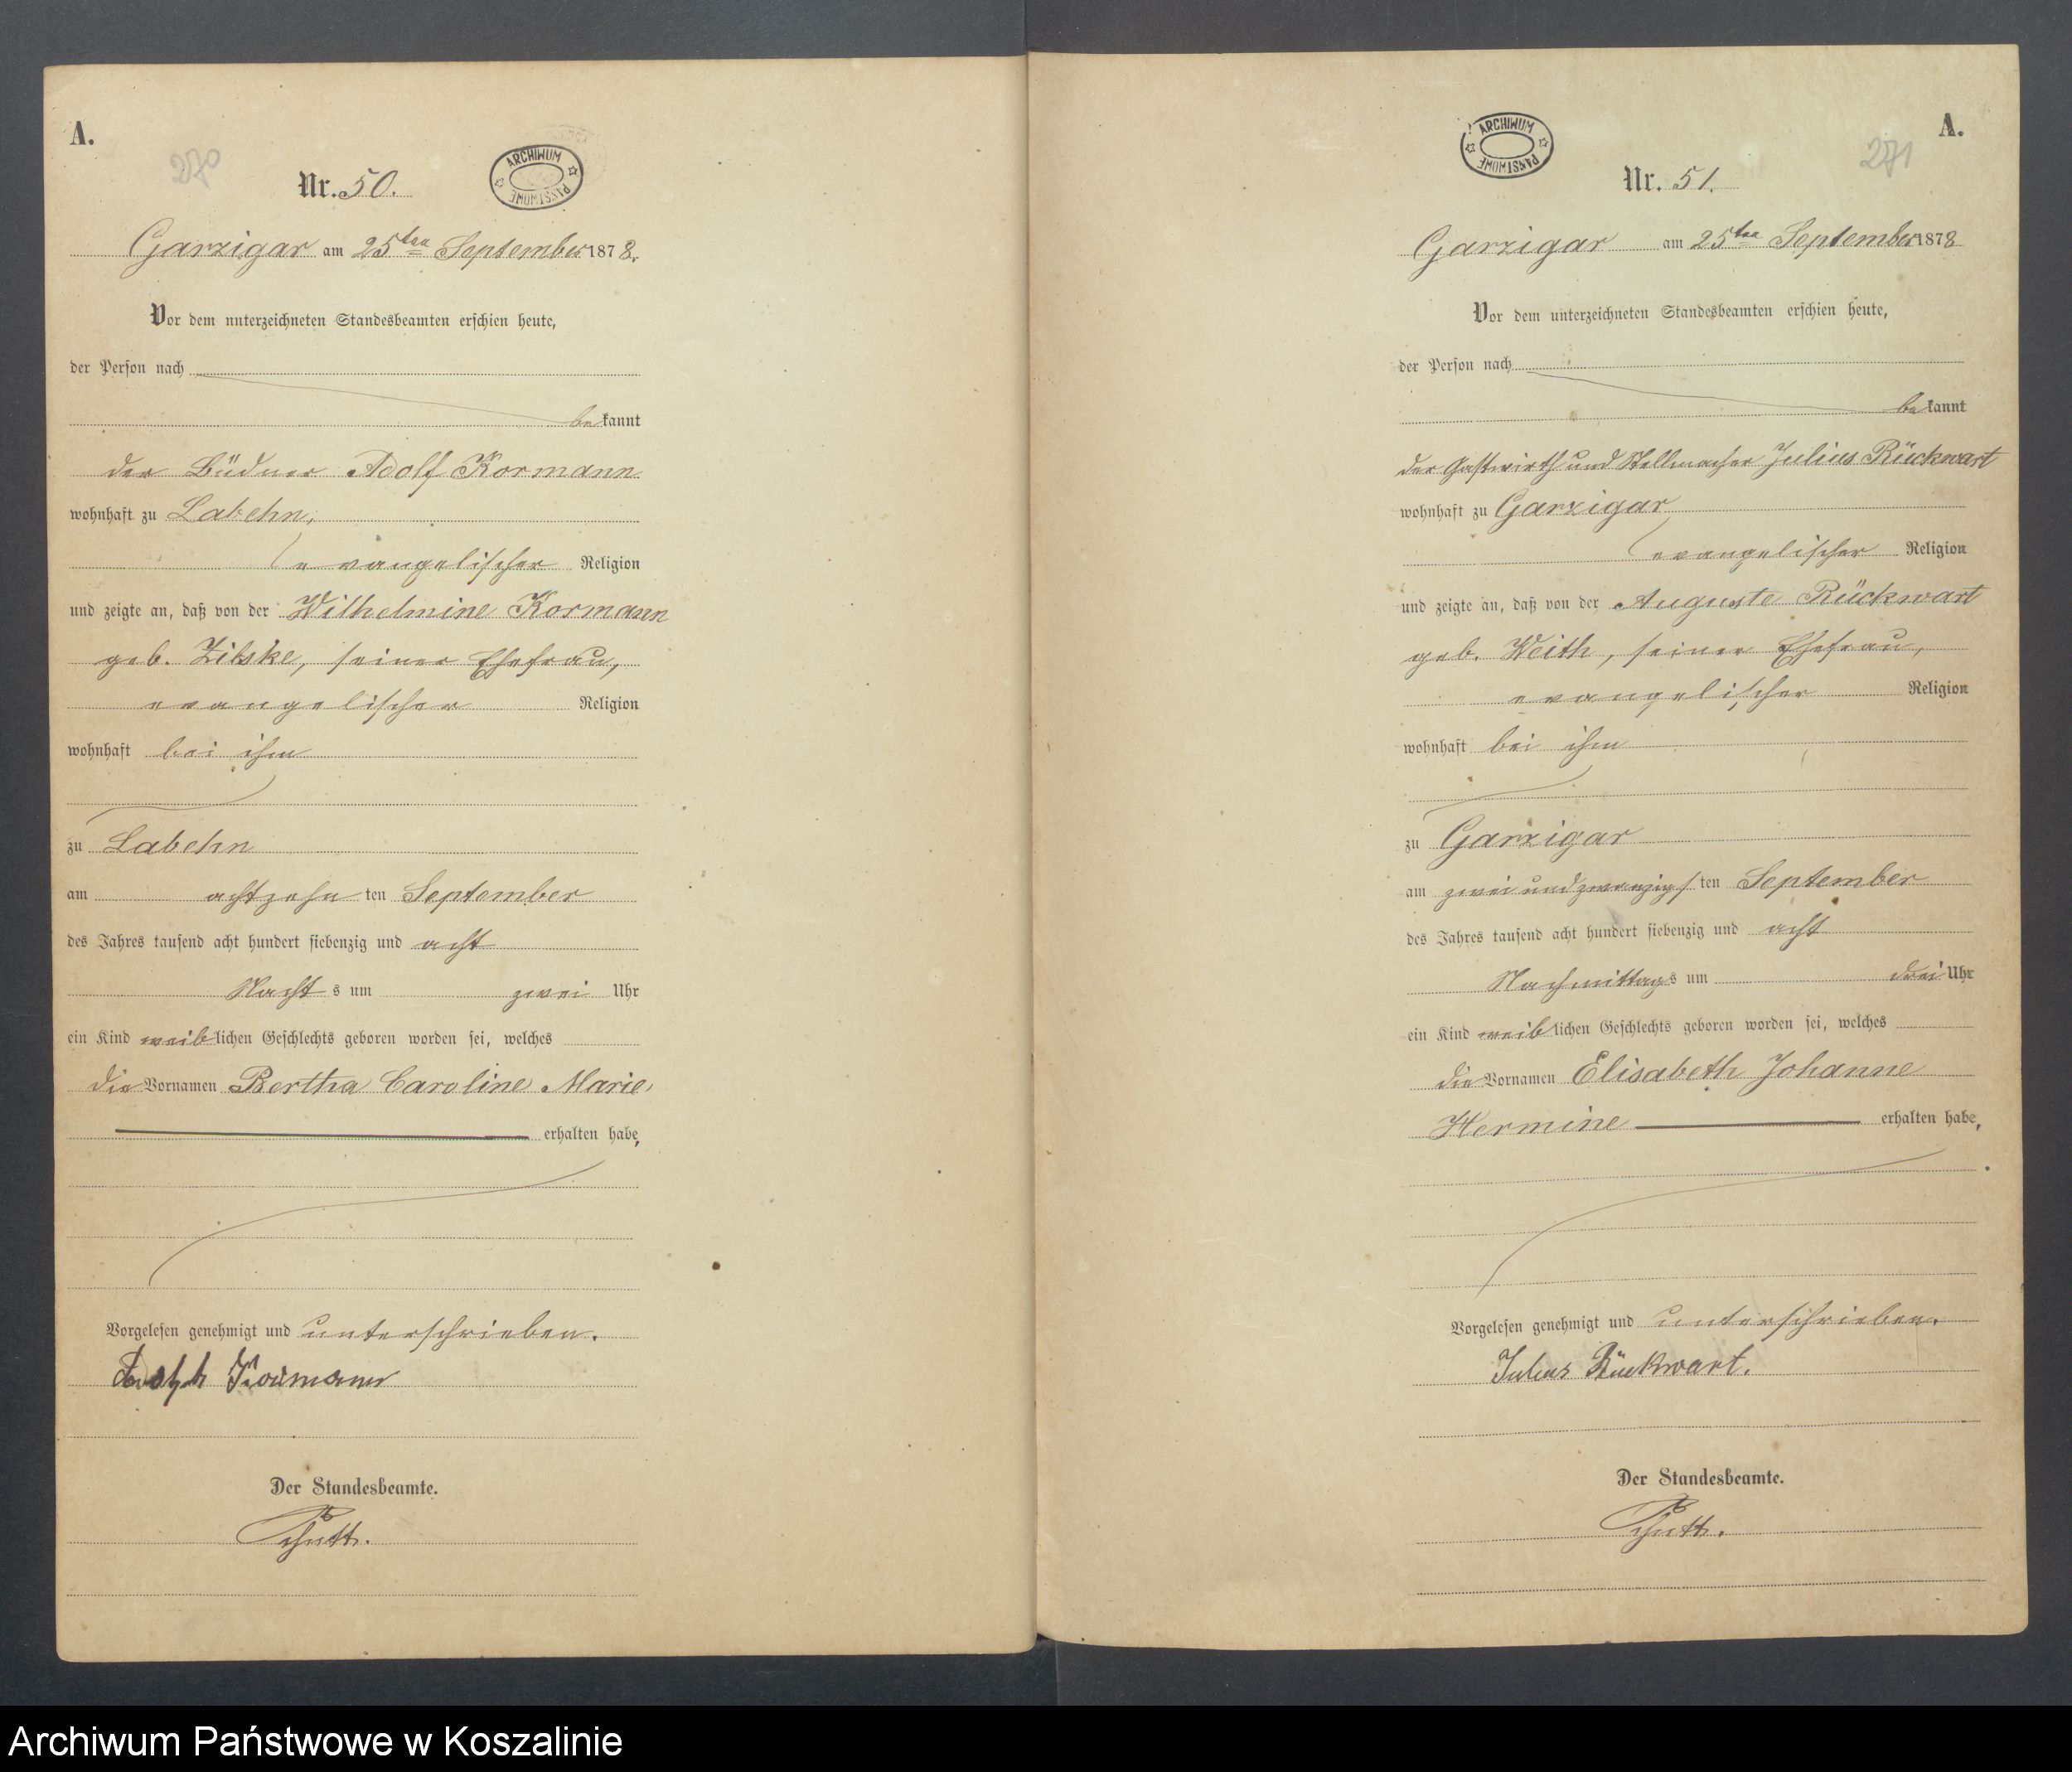 A.
270
Nr. 50.
ARCHIWUM PAŃSTWOWE
Garzigar am 25ten September 1878.
Vor dem unterzeichneten Standesbeamten erschien heute,
der Person nach
bekannt
der Büdner Adolf Kormann
wohnhaft zu Labehn,
evangelischer Religion
und zeigte an, daß von der Wilhelmine Kormann
geb. Zilske, seiner Ehefrau,
evangelischer Religion
wohnhaft bei ihm
zu Labehn
am achtzehn ten September
des Jahres tausend acht hundert siebenzig und acht
Nachts um zwei Uhr
ein Kind weiblichen Geschlechts geboren worden sei, welches
die Vornamen Bertha Caroline Marie,
erhalten habe,
Vorgelesen genehmigt und unterschrieben.
Adolph Kormann
Der Standesbeamte.
A.
271
Nr. 51.
ARCHIWUM PAŃSTWOWE
Garzigar am 25ten September 1878
Vor dem unterzeichneten Standesbeamten erschien heute,
der Person nach
bekannt
der Gastwirth und Stellmacher Julius Rückwart
wohnhaft zu Garzigar
evangelischer Religion
und zeigte an, daß von der Auguste Rückwart
geb. Weith, seiner Ehefrau,
evangelischer Religion
wohnhaft bei ihm
zu Garzigar
am zwei und zwanzigsten September
des Jahres tausend acht hundert siebenzig und acht
Nachmittags um drei Uhr
ein Kind weiblichen Geschlechts geboren worden sei, welches
die Vornamen Elisabeth Johanne
Hermine erhalten habe,
Vorgelesen genehmigt und unterschrieben.
Julius Rückwart.
Der Standesbeamte.
Archiwum Państwowe w Koszalinie